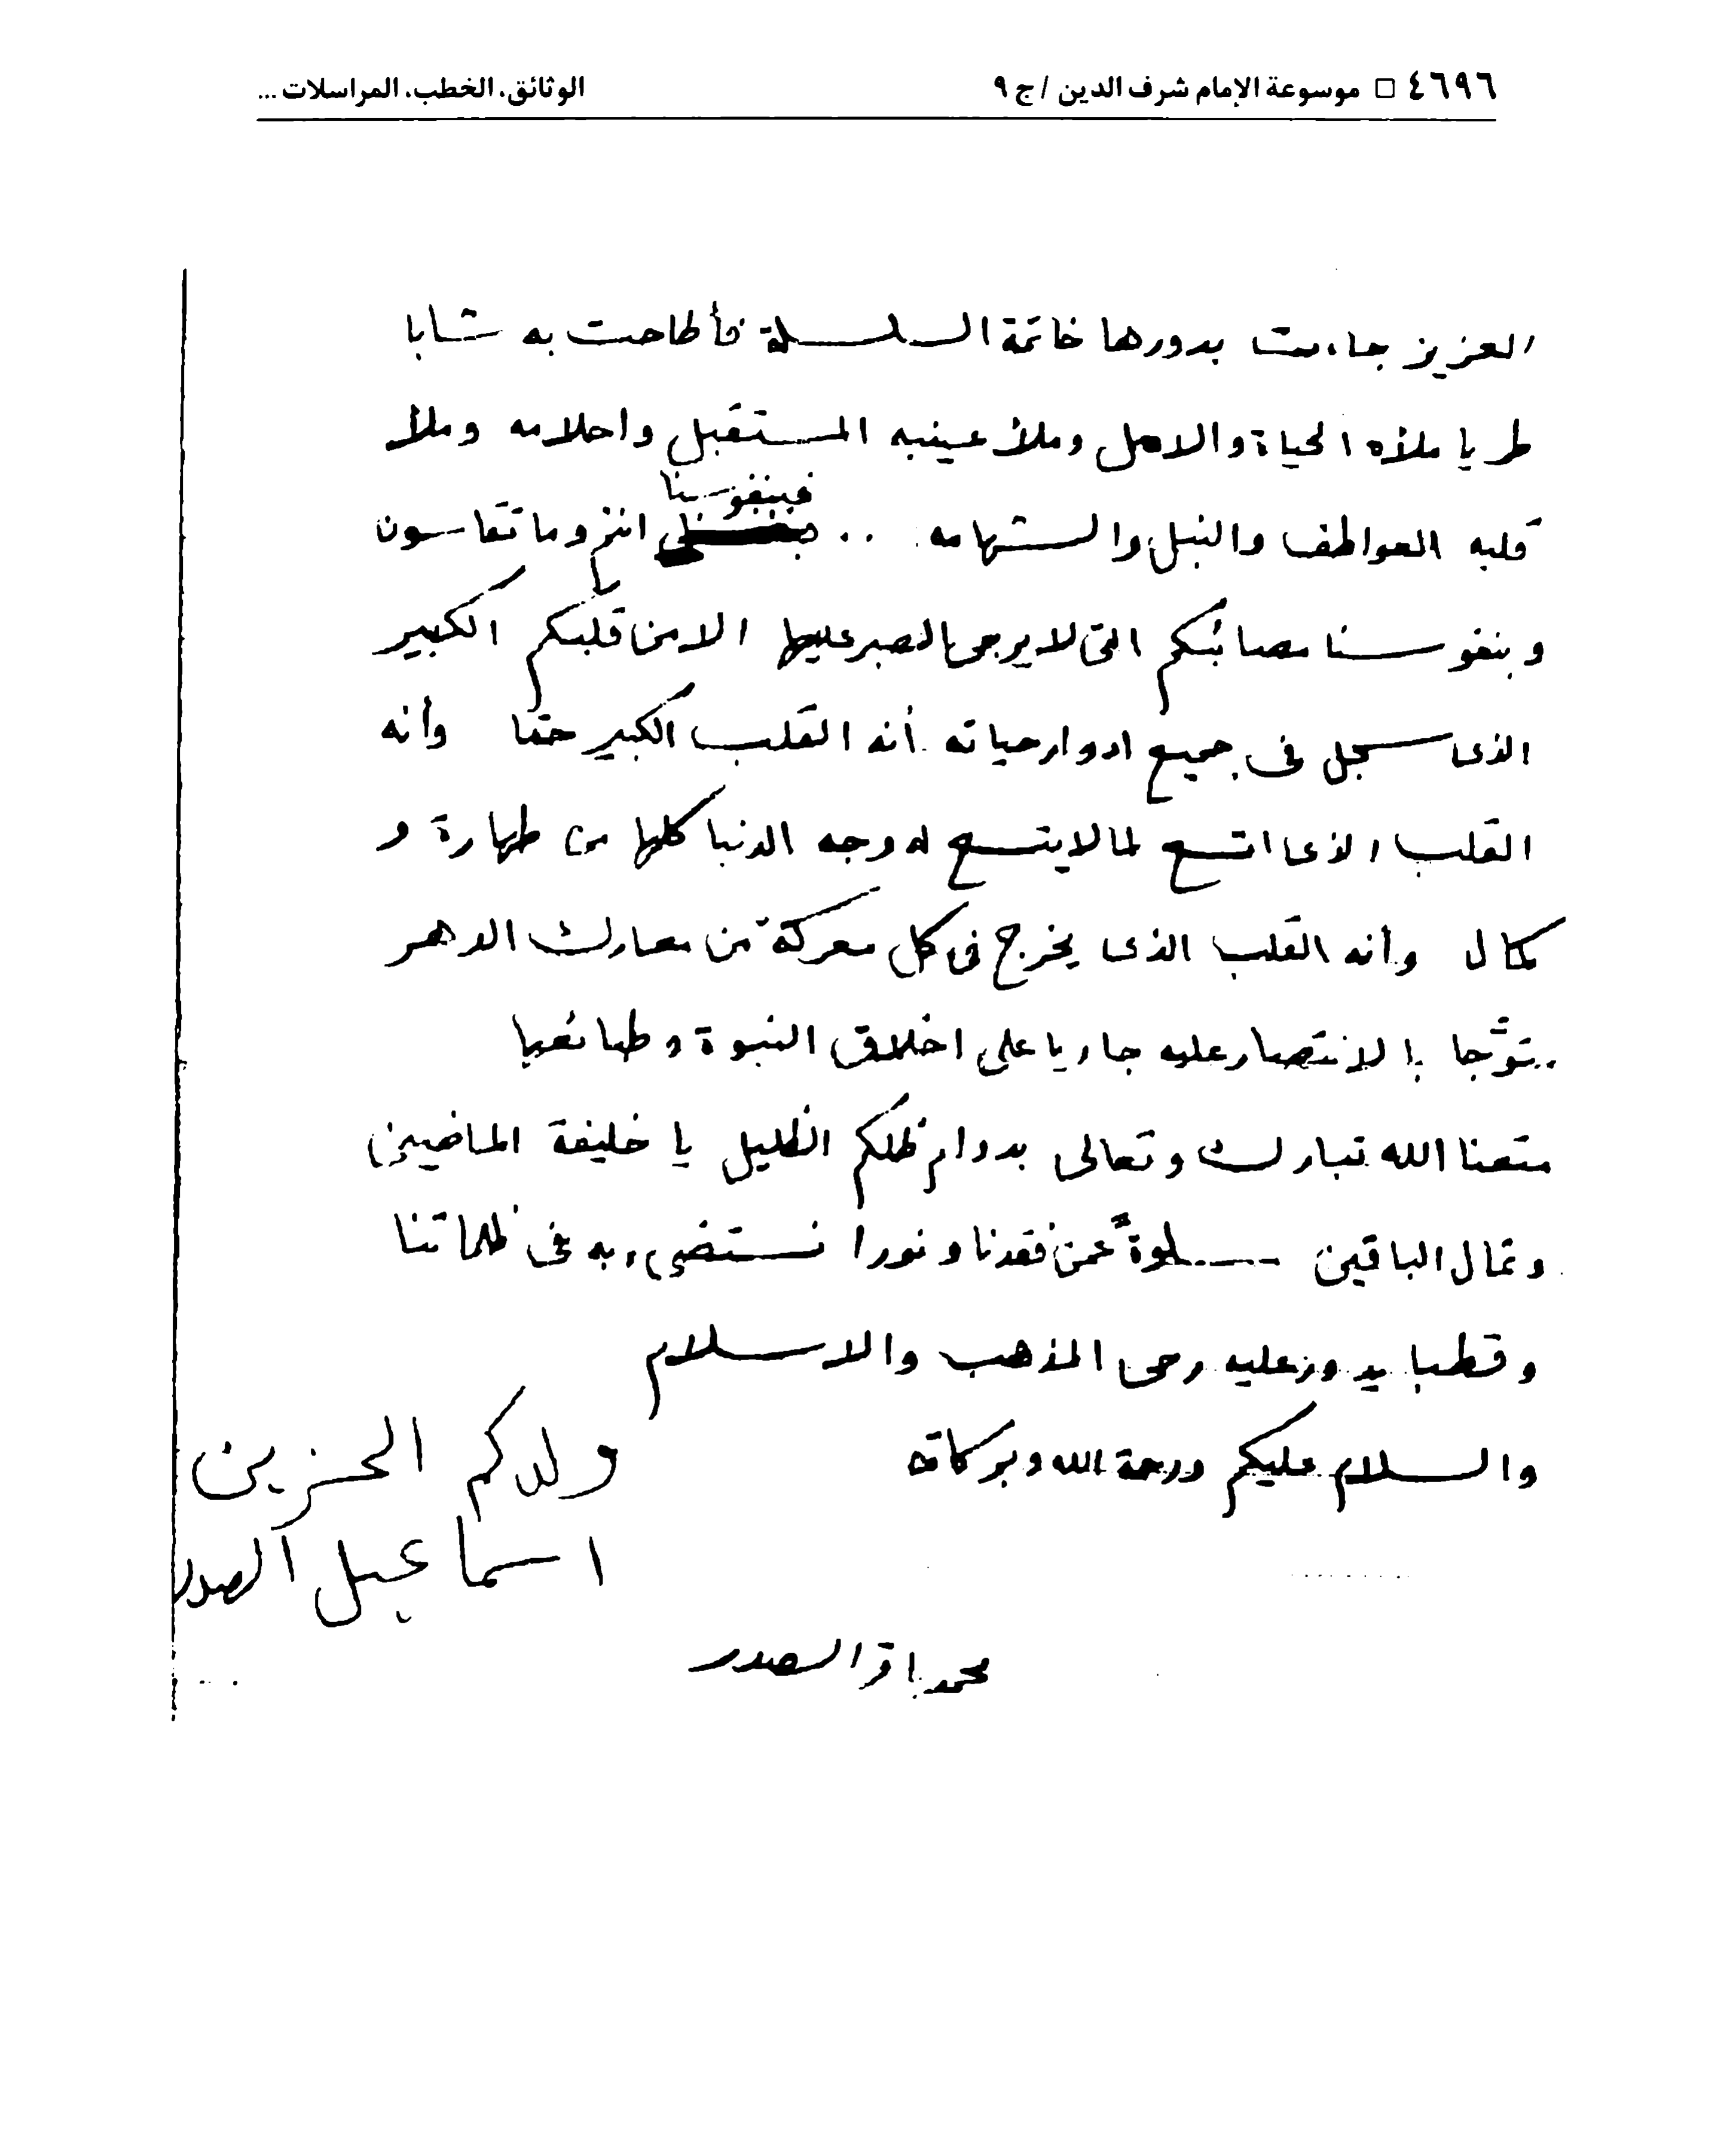 ٤٦٩٦ □ موسوعة الإمام شرف الدين / ج ٩ الوثائق، الخطب، المراسلات ...
العزيز جاءت بدورها خاتمة السلسلة فأطاحت به شابا
طريا ملؤه الحياة والامل وملأ عينيه المستقبل واحلامه وملأ
قلبه العواطف والنبل والشهامه .. فبنفوسنا انتم وما تقاسون
وبنفوسنا مصائبكم التى لا يرجى الصبر عليها الا من قلبكم الكبير
الذى سجل فى جميع ادوار حياته أنه القلب الكبير حقا وأنه
القلب الذى اتسع لما لا يتسع له وجه الدنيا كلها من طهارة و
كمال وأنه القلب الذى يخرج فى كل معركة من معارك الدهر
متوّجا بالانتصار عليه جاريا على اخلاق النبوة وطبائعها
متعنا الله تبارك وتعالى بدوام ظلكم الظليل يا خليفة الماضين
وثمال الباقين سلوةً عمن فقدنا ونورا نستضيء به فى ظلماتنا
وقطبا يدور عليه رحى المذهب والاسلام
والسلام عليكم ورحمة الله وبركاته
ولدكم الحزين
اسماعيل الصدر
محمد باقر الصدر